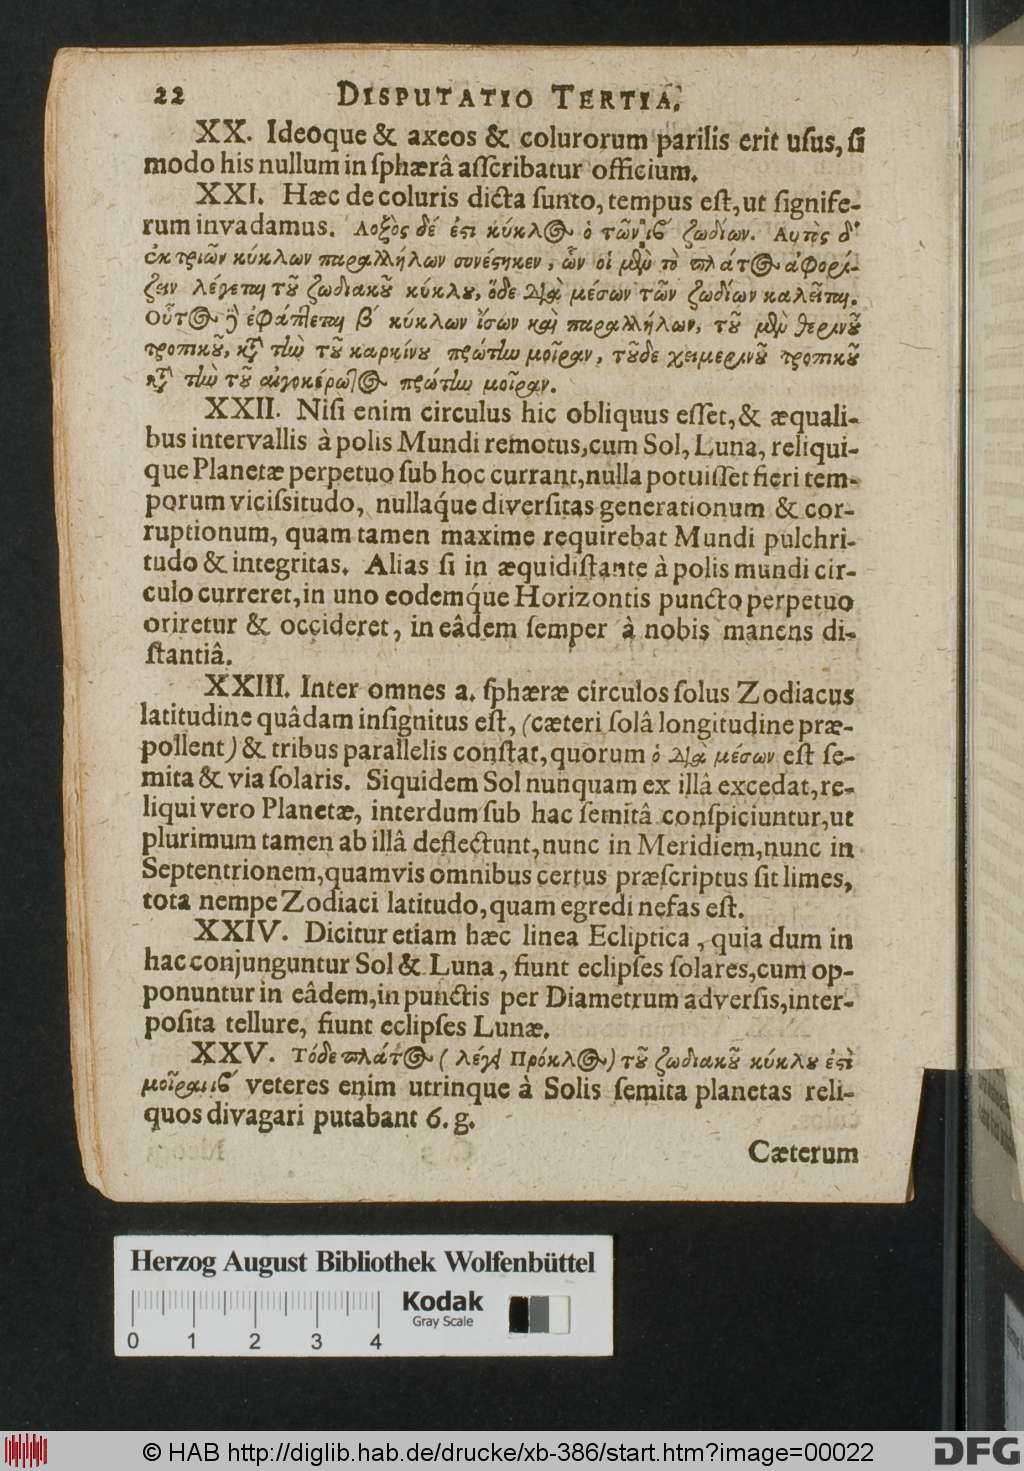 22 DISPUTATIO TERTIA.
XX. Ideoque & axeos & colurorum parilis erit usus, si
modo his nullum in sphærâ asscribatur officium.
XXI. Hæc de coluris dicta sunto, tempus est, ut signife-
rum invadamus. Λοξὸς δέ ἐστι κύκλος ὁ τῶν ιβ´ ζωδίων. Αυτὸς δ'
ἐκ τριῶν κύκλων παραλλήλων συνέστηκεν, ὧν οἱ μὲν τὸ πλάτος ἀφορί-
ζειν λέγεται τοῦ ζωδιακοῦ κύκλου, ὅδε διὰ μέσων τῶν ζωδίων καλεῖται.
Οὗτος ἢ ἐφάπτεται β´ κύκλων ἴσων καὶ παραλλήλων, τοῦ μὲν θερινοῦ
τροπικοῦ, κατὰ τὴν τοῦ καρκίνου πρώτην μοῖραν, τοῦδε χειμερινοῦ τροπικοῦ
κατὰ τὴν τοῦ αἰγοκέρωτος πρώτην μοῖραν.
XXII. Nisi enim circulus hic obliquus esset, & æquali-
bus intervallis à polis Mundi remotus, cum Sol, Luna, reliqui-
que Planetæ perpetuo sub hoc currant, nulla potuisset fieri tem-
porum vicissitudo, nullaq́ue diversitas generationum & cor-
ruptionum, quam tamen maxime requirebat Mundi pulchri-
tudo & integritas. Alias si in æquidistante à polis mundi cir-
culo curreret, in uno eodemq́ue Horizontis puncto perpetuo
oriretur & occideret, in eâdem semper à nobis manens di-
stantiâ.
XXIII. Inter omnes a. sphæræ circulos solus Zodiacus
latitudine quâdam insignitus est, (cæteri solâ longitudine præ-
pollent) & tribus parallelis constat, quorum ὁ διὰ μέσων est se-
mita & via solaris. Siquidem Sol nunquam ex illâ excedat, re-
liqui vero Planetæ, interdum sub hac semitâ conspiciuntur, ut
plurimum tamen ab illâ deflectunt, nunc in Meridiem, nunc in
Septentrionem, quamvis omnibus certus præscriptus sit limes,
tota nempe Zodiaci latitudo, quam egredi nefas est.
XXIV. Dicitur etiam hæc linea Ecliptica, quia dum in
hac conjunguntur Sol & Luna, fiunt eclipses solares, cum op-
ponuntur in eâdem, in punctis per Diametrum adversis, inter-
posita tellure, fiunt eclipses Lunæ.
XXV. Τόδε πλάτος (λέγει Πρόκλος) τοῦ ζωδιακοῦ κύκλου ἐστὶ
μοῖραι ιβ´ veteres enim utrinque à Solis semita planetas reli-
quos divagari putabant 6. g.
Cæterum
Herzog August Bibliothek Wolfenbüttel
Kodak
Gray Scale
0 1 2 3 4
© HAB http://diglib.hab.de/drucke/xb-386/start.htm?image=00022
DFG